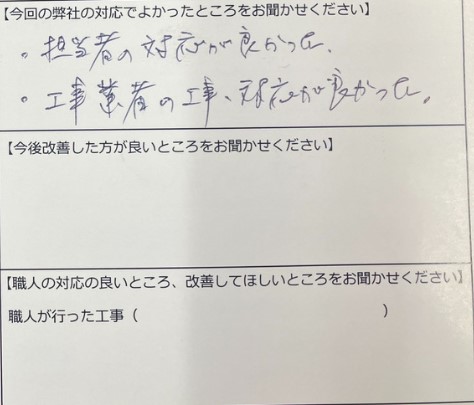 【今回の弊社の対応でよかったところをお聞かせください】
・担当者の対応が良かった。
・工事業者の工事、対応が良かった。
【今後改善した方が良いところをお聞かせください】
【職人の対応の良いところ、改善してほしいところをお聞かせください】
職人が行った工事（　　　　　　　　　　　　　　　　）